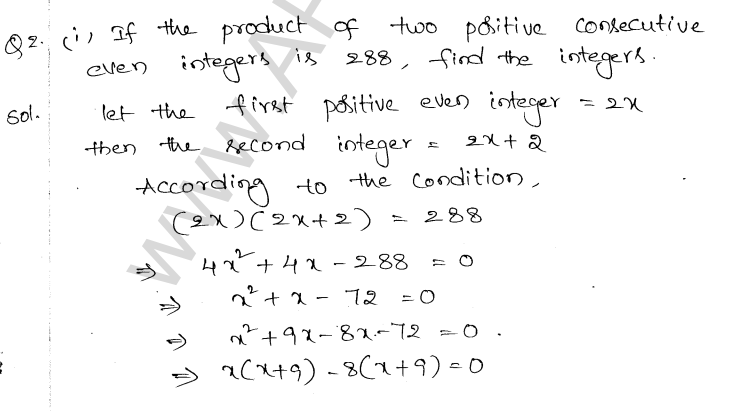 Q2. (i) If the product of two positive consecutive
even integers is 288, find the integers.
Sol. let the first positive even integer = 2x
then the second integer = 2x + 2
According to the condition,
(2x)(2x+2) = 288
⇒ 4x² + 4x - 288 = 0
⇒ x² + x - 72 = 0
⇒ x² + 9x - 8x - 72 = 0.
⇒ x(x+9) - 8(x+9) = 0
www.AH